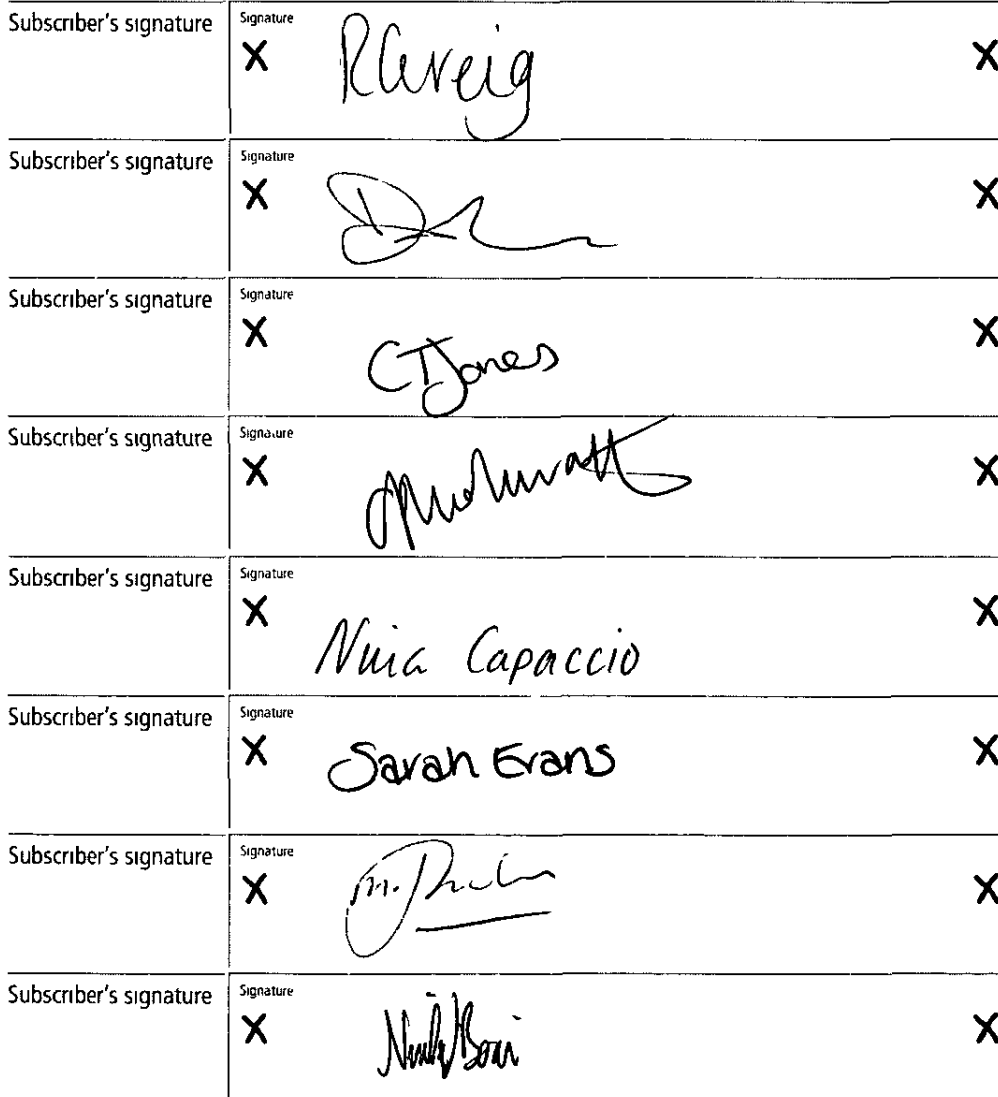 Subscriber's signature Signature
X X
Subscriber's signature Signature
X X
Subscriber's signature Signature
X X
CTJones
Subscriber's signature Signature
X X
Subscriber's signature Signature
X X
Nina Capaccio
Subscriber's signature Signature
X X
Sarah Evans
Subscriber's signature Signature
X X
M.
Subscriber's signature Signature
X X